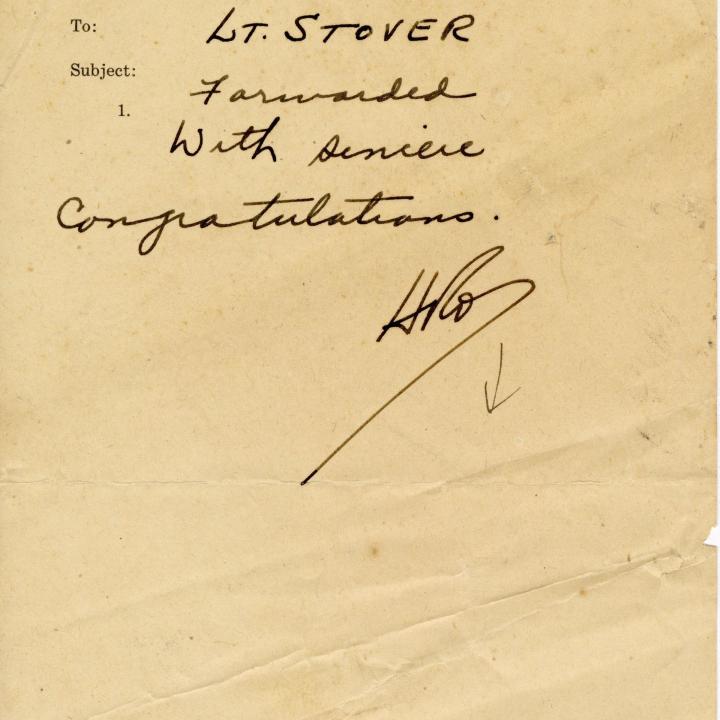 To: LT. STOVER
Subject:
1. Forwarded
With sincere
Congratulations.